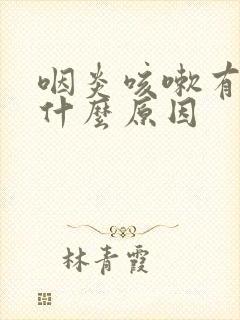 咽炎咳嗽有
什麼原因
林青霞